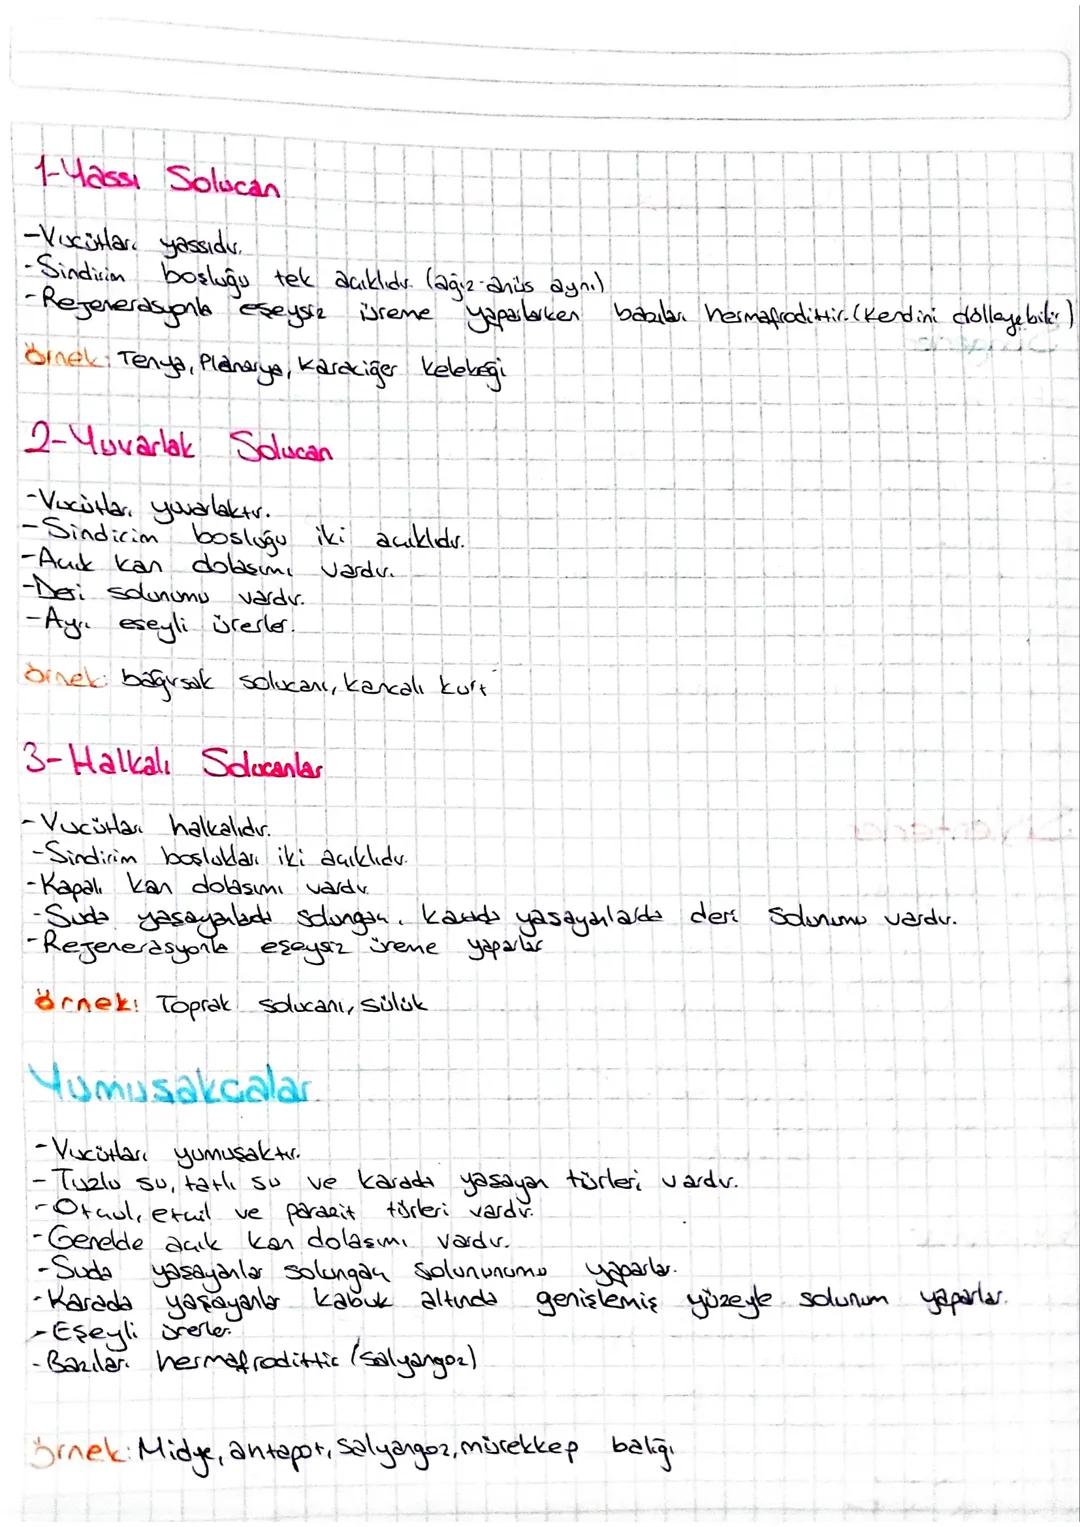 1-Yassı Solucan
-Vücütları yassıdır.
-Sindirim boşluğu tek açıklıdır. (ağız-anüs aynı)
-Rejenerasyonla eşeysiz üreme yaparlarken bazıları hermafrodittir. (Kendini dölleyebilir)
Örnek: Tenya, Planarya, Karaciğer kelebeği
2-Yuvarlak Solucan
-Vücütları yuvarlaktır.
-Sindirim bosluğu iki açıklıdır.
-Açık kan dolaşımı vardır.
-Deri solunumu vardır.
-Ayrı eşeyli ürerler.
Örnek: bağırsak solucanı, kancalı kurt
3-Halkalı Solucanlar
-Vücütları halkalıdır.
-Sindirim boşlukları iki açıklıdır.
-Kapalı kan dolaşımı vardır
-Suda yaşayanlarda solungaç, karada yaşayanlarda deri solunumu vardır.
-Rejenerasyonla eşeysiz üreme yaparlar
Örnek: Toprak solucanı, sülük
Yumuşakçalar
-Vücütları yumuşaktır.
-Tuzlu su, tatlı su ve karada yaşayan türleri vardır.
-Otçul, etçil ve parazit türleri vardır.
-Genelde açık kan dolaşımı vardır.
-Suda yaşayanlar solungaç solunumu yaparlar.
-Karada yaşayanlar kabuk altında genişlemiş yüzeyle solunum yaparlar.
-Eşeyli ürerler.
-Bazıları hermafrodittir (salyangoz)
Örnek: Midye, antapot, salyangoz, mürekkep balığı